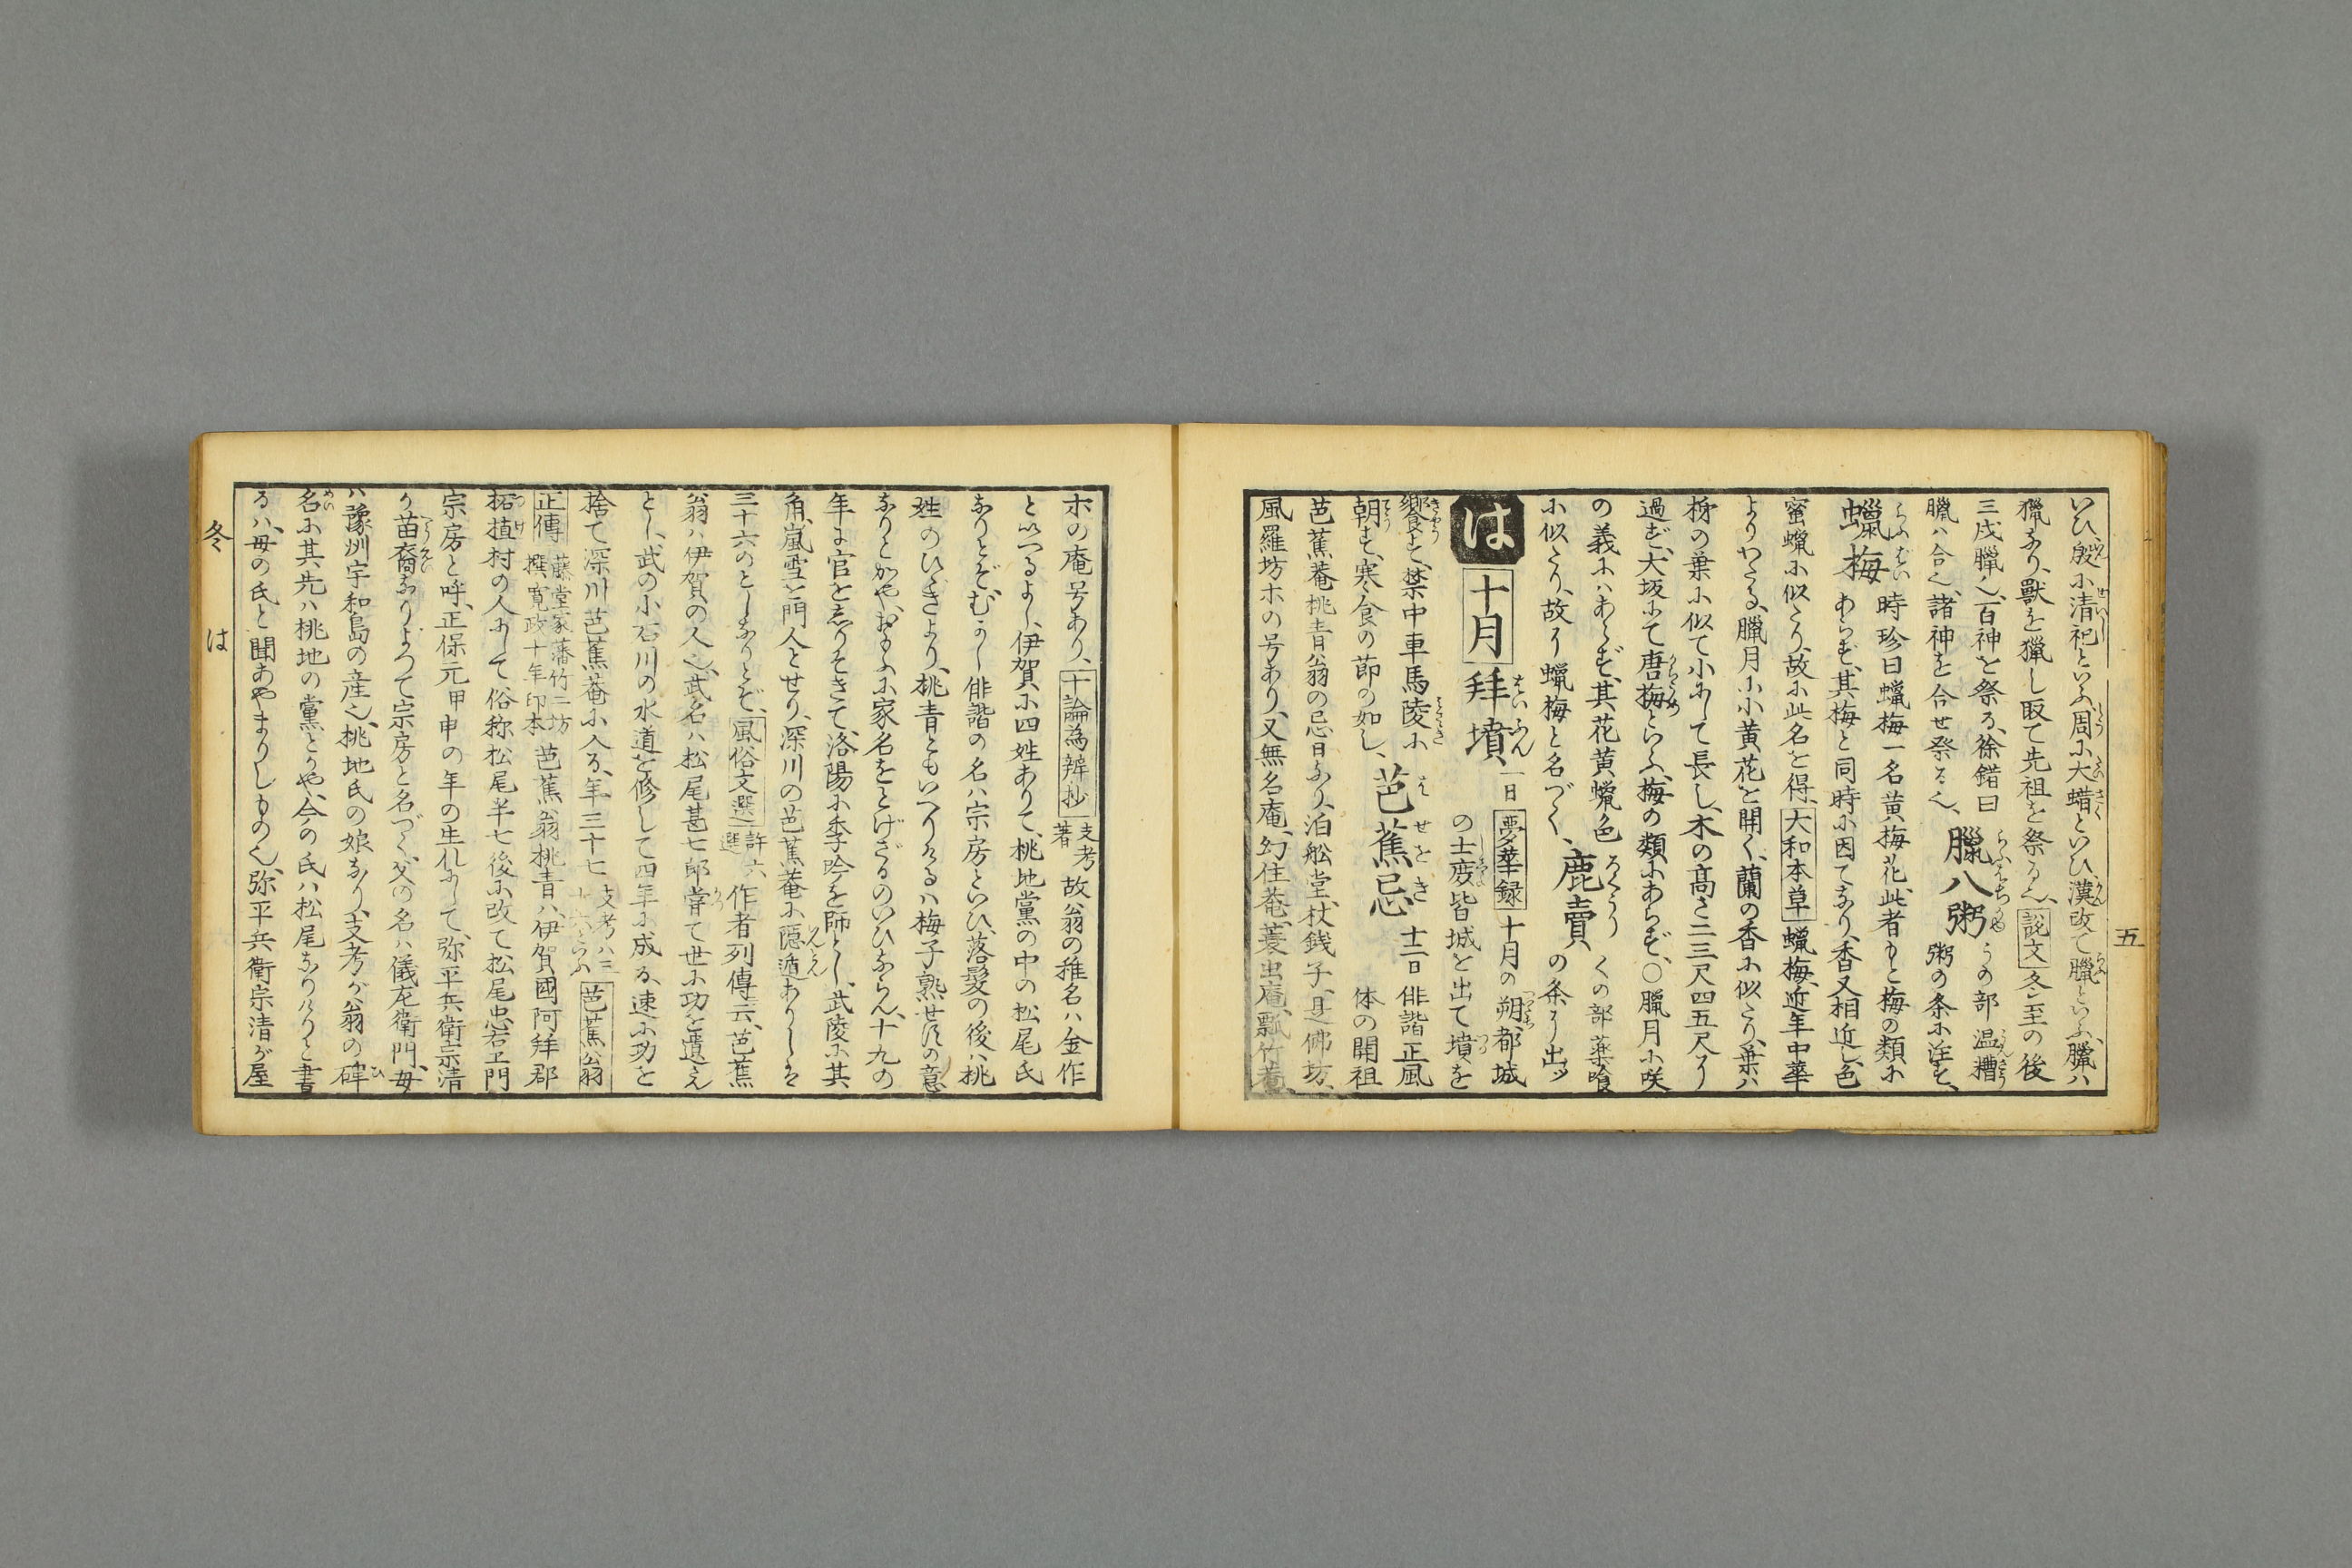 五
いひ、殷に清祀といふ、周に大蜡といひ、漢改て臘といふ、臘ハ
獵なり、獸を獵し取て先祖を祭る也、説文冬至の後
三戌臘也、百神を祭る、徐鍇曰
臘ハ合也、諸神を合せ祭る也、
臘八粥 うの部温糟
粥の条に注す、
蠟梅 時珍曰蠟梅一名黄梅花、此者もと梅の類に
あらず、其梅と同時に因てなり、香又相近し、色
蜜蝋に似たり、故に此名を得、大和本草蝋梅、近年中華
よりわたる、臘月に小黄花を開く、蘭の香に似たり、葉ハ
の葉に似て小にして長し、木の高さ二三尺四五尺に
過ず、大坂にて唐梅といふ、梅の類にあらず、〇臘月に咲
の義にハあらず、其花黄蝋色
に似たり、故に蝋梅と名づく、
鹿賣 くの部薬喰
の条に出ッ
は 十月 拜墳 一日 夢華録 十月の朔、都城
の士庶皆城を出て墳を
饗す、禁中車馬陵に
朝す、寒食の節の如し、
芭蕉忌 十二日 俳諧正風
体の開祖
芭蕉菴桃青翁の忌日なり、泊舩堂、杖銭子、是佛坊、
風羅坊ホの号あり、又無名庵、幻住菴、蓑虫庵、瓢竹菴、
ホの庵号あり、十論為辨抄 支考著 故翁の稚名ハ金作
といへるよし、伊賀に四姓ありて、桃地黨の中の松尾氏
なりとぞ、むかし俳諧の名ハ宗房といひ、落髪の後ハ桃
姓のひゞきより、桃青ともいへりけるハ梅子熟せにの意
なりとかや、おもふに家名をとげざるのいひならん、十九の
年に官をしりぞきて、洛陽に季吟を師とし、武陵に其
角、嵐雪を門人とせり、深川の芭蕉菴に隠遁ありしハ
三十六のとしなりとぞ、風俗文選 許六選 作者列傳云、芭蕉
翁ハ伊賀の人也、武名ハ松尾甚七郎、嘗て世に功を遺さん
とし、武の小石川の水道を修して四年に成る、速に功を
捨て深川芭蕉菴に入る、年三十七 支考ハ三十六といふ 芭蕉翁
正傳 藤堂家藩竹二坊撰寛政十年印本 芭蕉翁桃青ハ、伊賀國阿拜郡
柘植村の人にして、俗称松尾半七後に改て、松尾忠右エ門
宗房と呼、正保元甲申の年の生れにして、弥平兵衛宗清
が苗裔なりよつて宗房と名づく、父の名ハ儀左衛門、母
ハ豫州宇和島の産也、桃地氏の娘なり、支考が翁の碑
名に其先ハ桃地の黨とかや、今の氏ハ松尾なりけりと書
るハ、母の氏と聞あやまりしもの也、弥平兵衛宗清が屋
冬 は